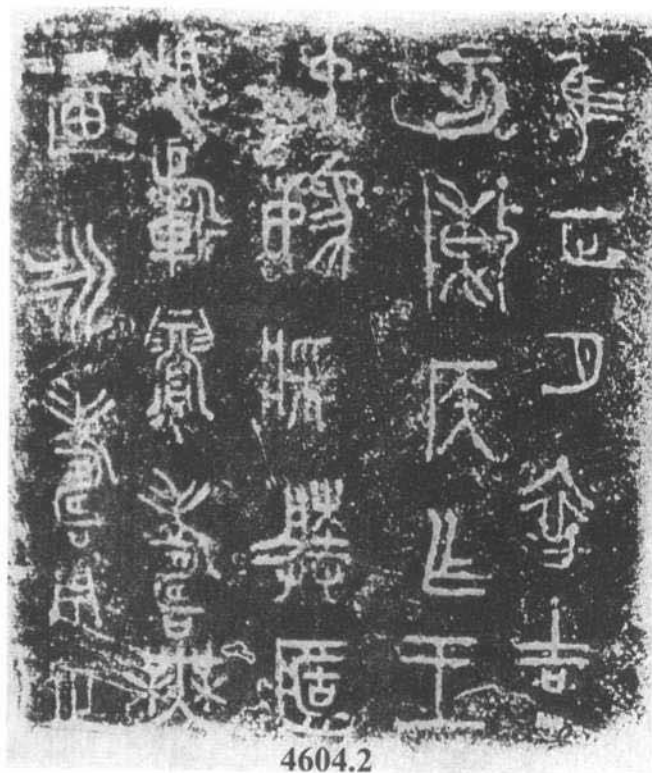 隹正月初吉丁
亥敶侯乍王
中媯媵
用祈眉壽無
疆永壽用之
4604.2